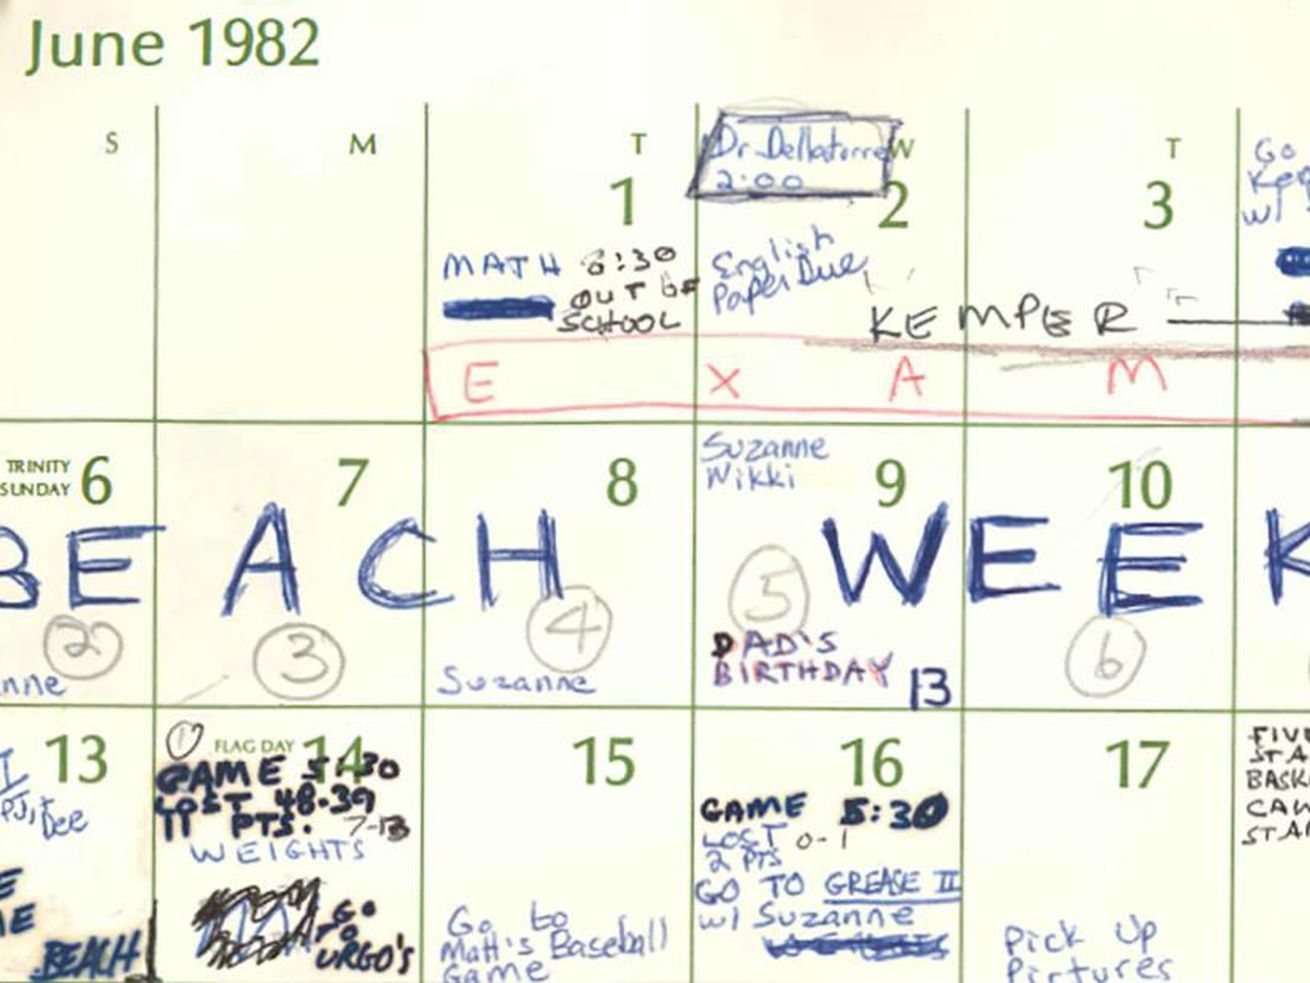 June 1982
S
M
T
W
T
Dr. Dellatorre
2:00
Go
1
2
3
MATH 8:30
OUT OF
SCHOOL
English
Paper Due
w/
KEMPER
E X A M
TRINITY
SUNDAY 6
7
8
Suzanne
Nikki
9
10
BEACH WEEK
2
3
4
5
6
nne
Suzanne
DAD'S
BIRTHDAY
13
13
PJ, Dee
BEACH
FLAG DAY 14
GAME 5:30
LOST 48-39
11 PTS. 7-13
WEIGHTS
GO
TO
URGO'S
15
Go to
Matt's Baseball
Game
16
GAME 5:30
LOST 0-1
2 PTS
GO TO GREASE II
w/ Suzanne
17
Pick Up
Pictures
FIV
STA
BASK
CAW
STA